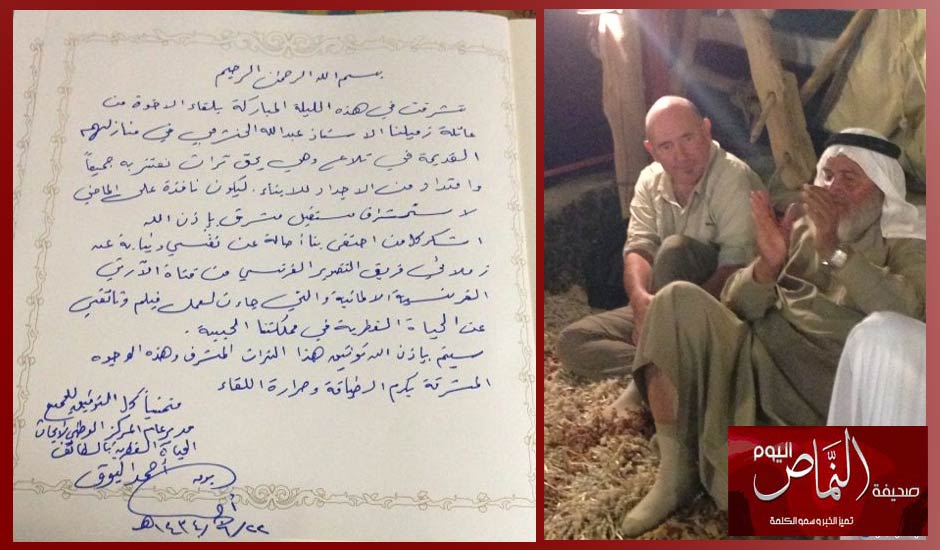 بسم الله الرحمن الرحيم
تشرفت في هذه الليلة المباركة بلقاء الاخوة من
عائلة زميلنا الاستاذ عبدالله الخثرمي في منازلهم
القديمة في تلاع وهي بحق تراث نعتز به جميعاً
وامتداد من الاجداد للابناء ليكون نافذة على الماضي
لاستشراف مستقبل مشرق بإذن الله
اشكر كل من احتفى بنا أصالة عن نفسي ونيابة عن
زملائي فريق التصوير الفرنسي من قناة الآرتي
الفرنسية الالمانية والتي جاءت لعمل فيلم وثائقي
عن الحياة الفطرية في مملكتنا الحبيبة .
سيتم بإذن الله توثيق هذا التراث المشرف وهذه الوجوه
المشرقة بكرم الضيافة وحرارة اللقاء
متمنياً كل التوفيق للجميع
مدير عام المركز الوطني لأبحاث
الحياة الفطرية بالطائف
أحمد البوق
١٤٣٤هـ
صحيفة النماص اليوم
تميز الخبر وسمو الكلمة